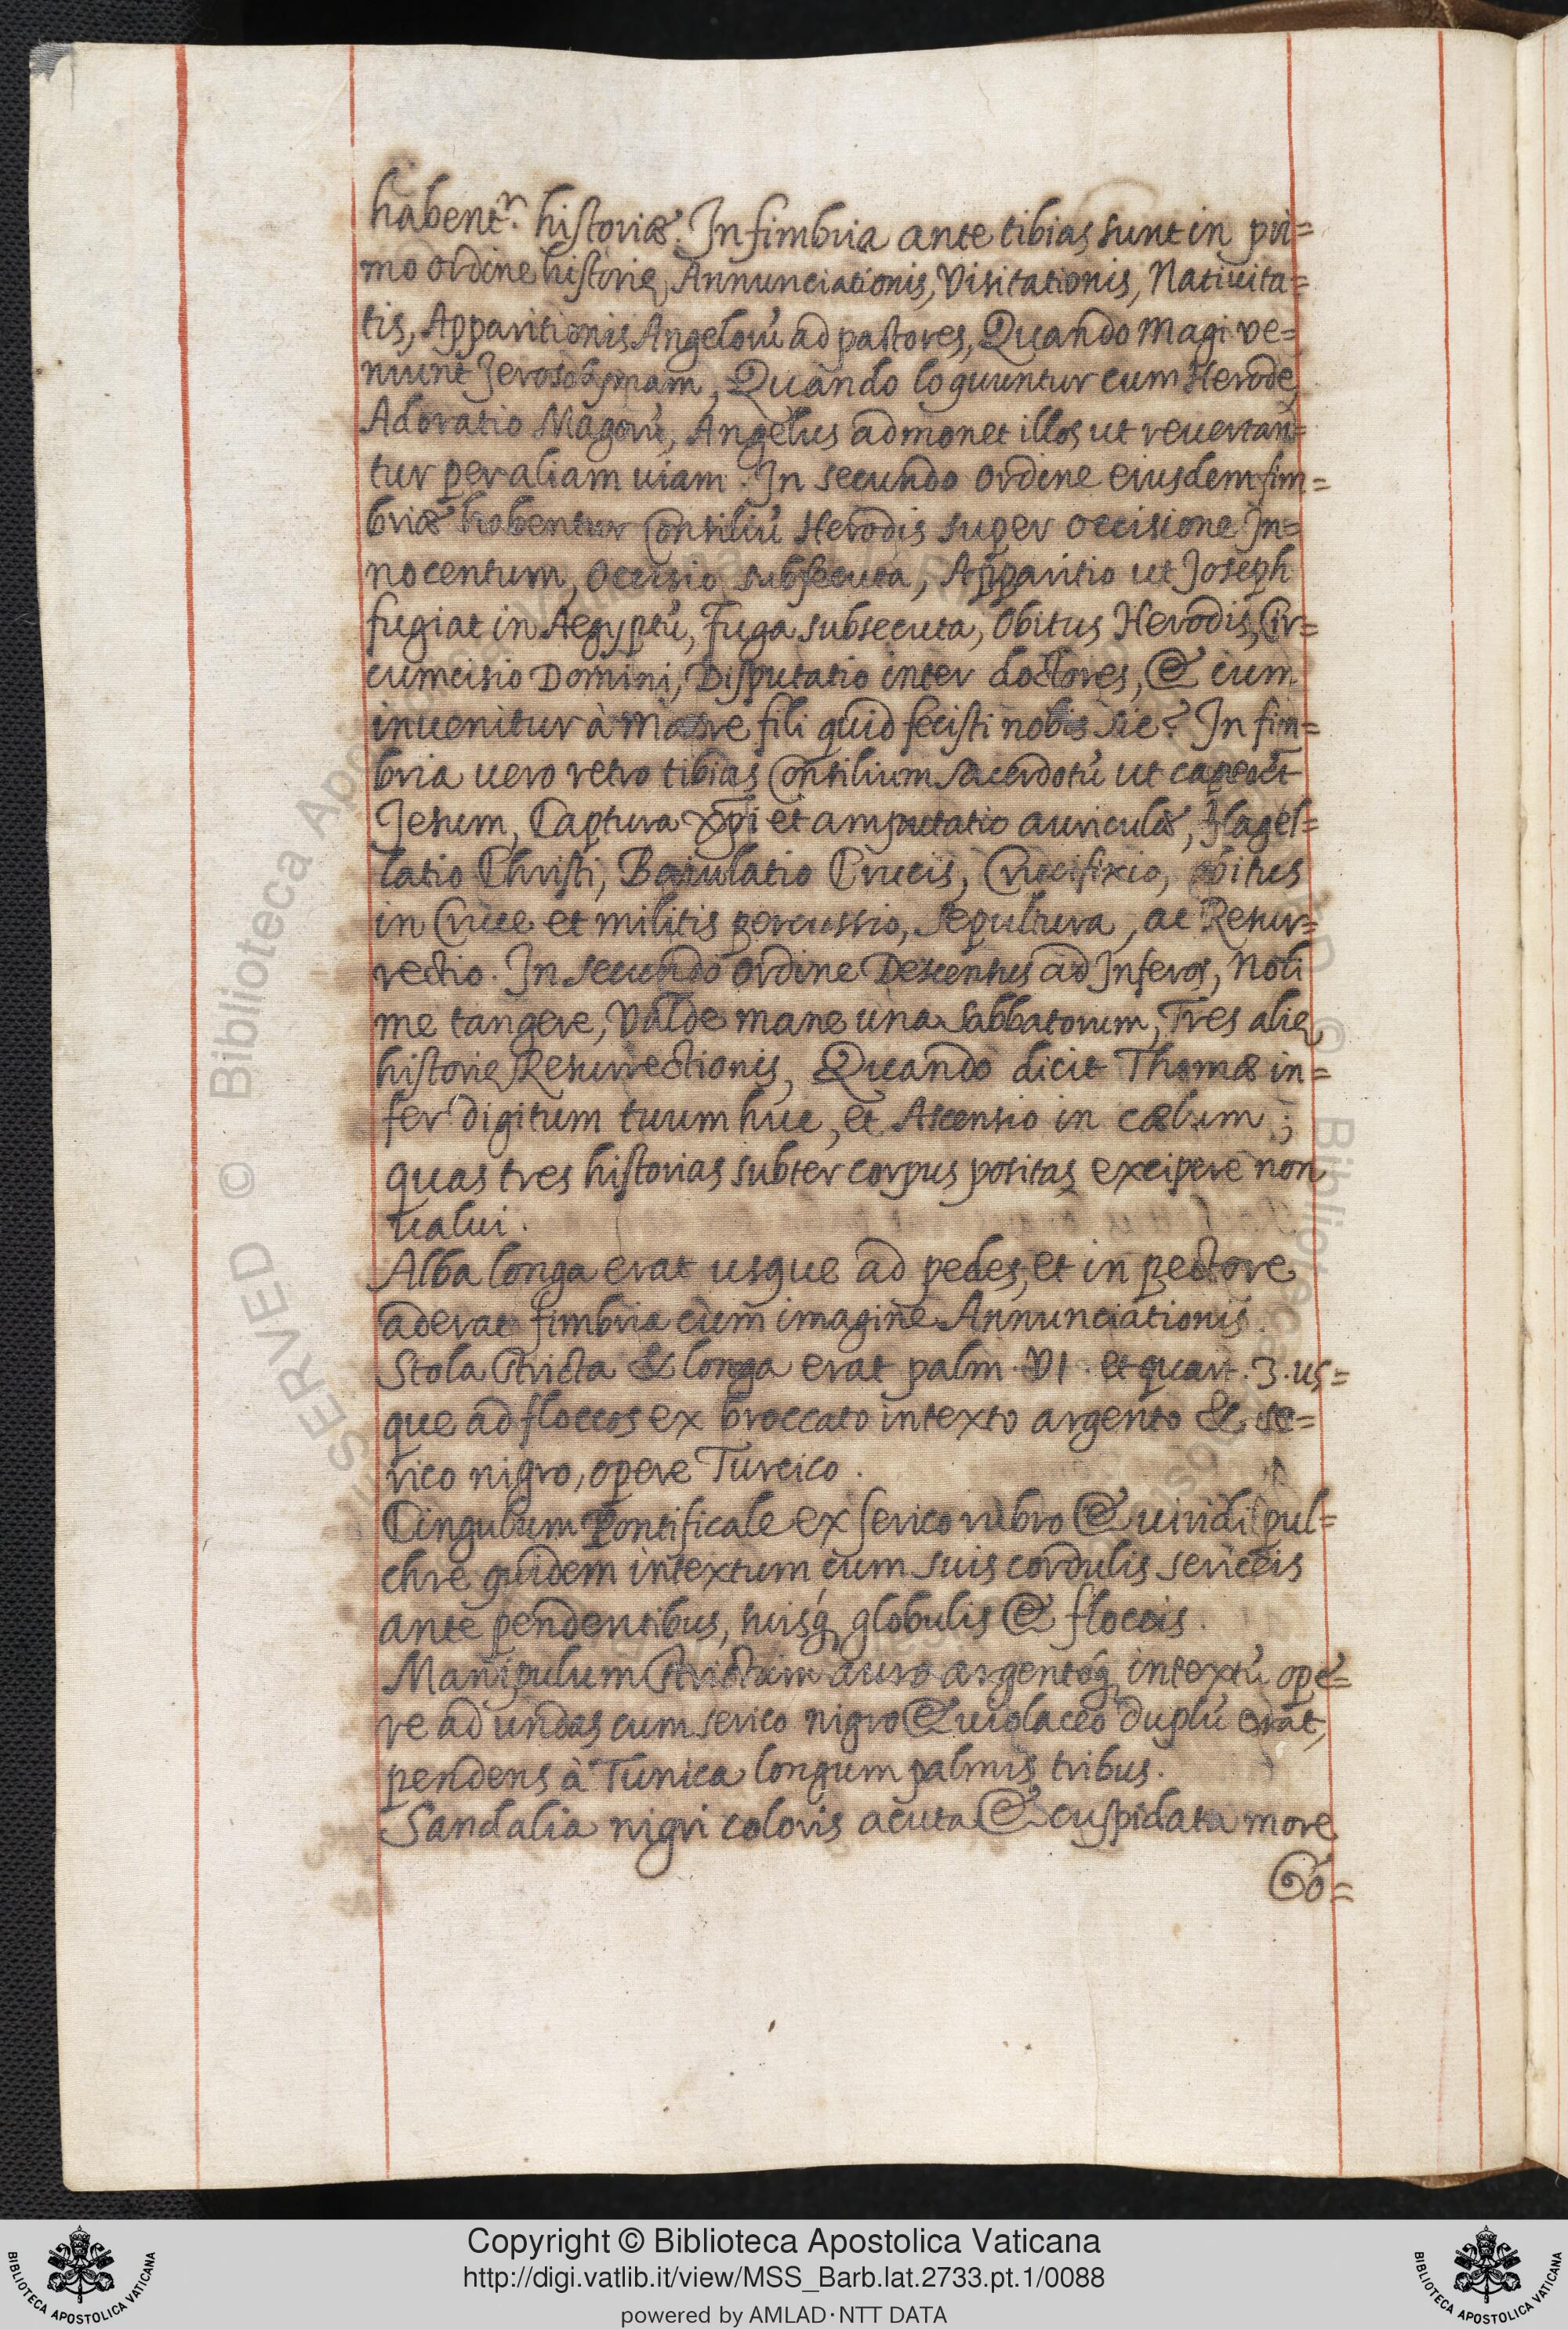 habent.r historiæ. In fimbria ante tibias sunt in pri=
mo ordine historię Annunciationis, Visitationis, Natiuita=
tis, Apparitionis Angelorũ ad pastores, Quando Magi ve=
niunt Jerosolymam, Quando loquuntur cum Herode,
Adoratio Magorũ, Angelus admonet illos ut reuertan=
tur per aliam uiam. In secundo ordine eiusdem fim=
briæ habentur Consiliũ Herodis super occisione In=
nocentum, Occisio subsecuta, Apparitio ut Joseph
fugiat in Aegyptũ, Fuga subsecuta, Obitus Herodis, Cir=
cumcisio Domini, Disputatio inter doctores, & cum
inuenitur à Matre fili quid fecisti nobis sic? In fim=
bria uero retro tibias Consilium Sacerdotũ ut caperẽt
Jesum, Captura Xp̃i et amputatio auriculæ, Flagel=
latio Christi, Baiulatio Crucis, Crucifixio, obitus
in Cruce et militis percussio, Sepultura, ac Resur=
rectio. In secundo ordine Descensus ad Inferos, Noli
me tangere, Valde mane una Sabbatorum, Tres alię
historię Resurrectionis, Quando dicit Thomæ in=
fer digitum tuum huc, et Ascensio in cælum;
quas tres historias subter corpus positas excipere non
ualui.
Alba longa erat usque ad pedes, et in pectore
aderat fimbria cum imagine Annunciationis.
Stola stricta & longa erat palm. VI. et quart. 3. us=
que ad floccos ex broccato intexto argento & se=
rico nigro, opere Turcico.
Cingulum Pontificale ex serico rubro & uiridi pul=
chre quidem intextum cum suis cordulis sericeis
ante pendentibus, suisq́; globulis & floccis.
Manipulum strictum auro argentoq́; intextũ ope=
re ad undas cum serico nigro & uiolaceo duplũ erat,
pendens à Tunica longum palmis tribus.
Sandalia nigri coloris acuta & cuspidata more
Go=
SERVED © Biblioteca Apostolica Vaticana
Copyright © Biblioteca Apostolica Vaticana
http://digi.vatlib.it/view/MSS_Barb.lat.2733.pt.1/0088
powered by AMLAD·NTT DATA
BIBLIOTECA APOSTOLICA VATICANA
BIBLIOTECA APOSTOLICA VATICANA